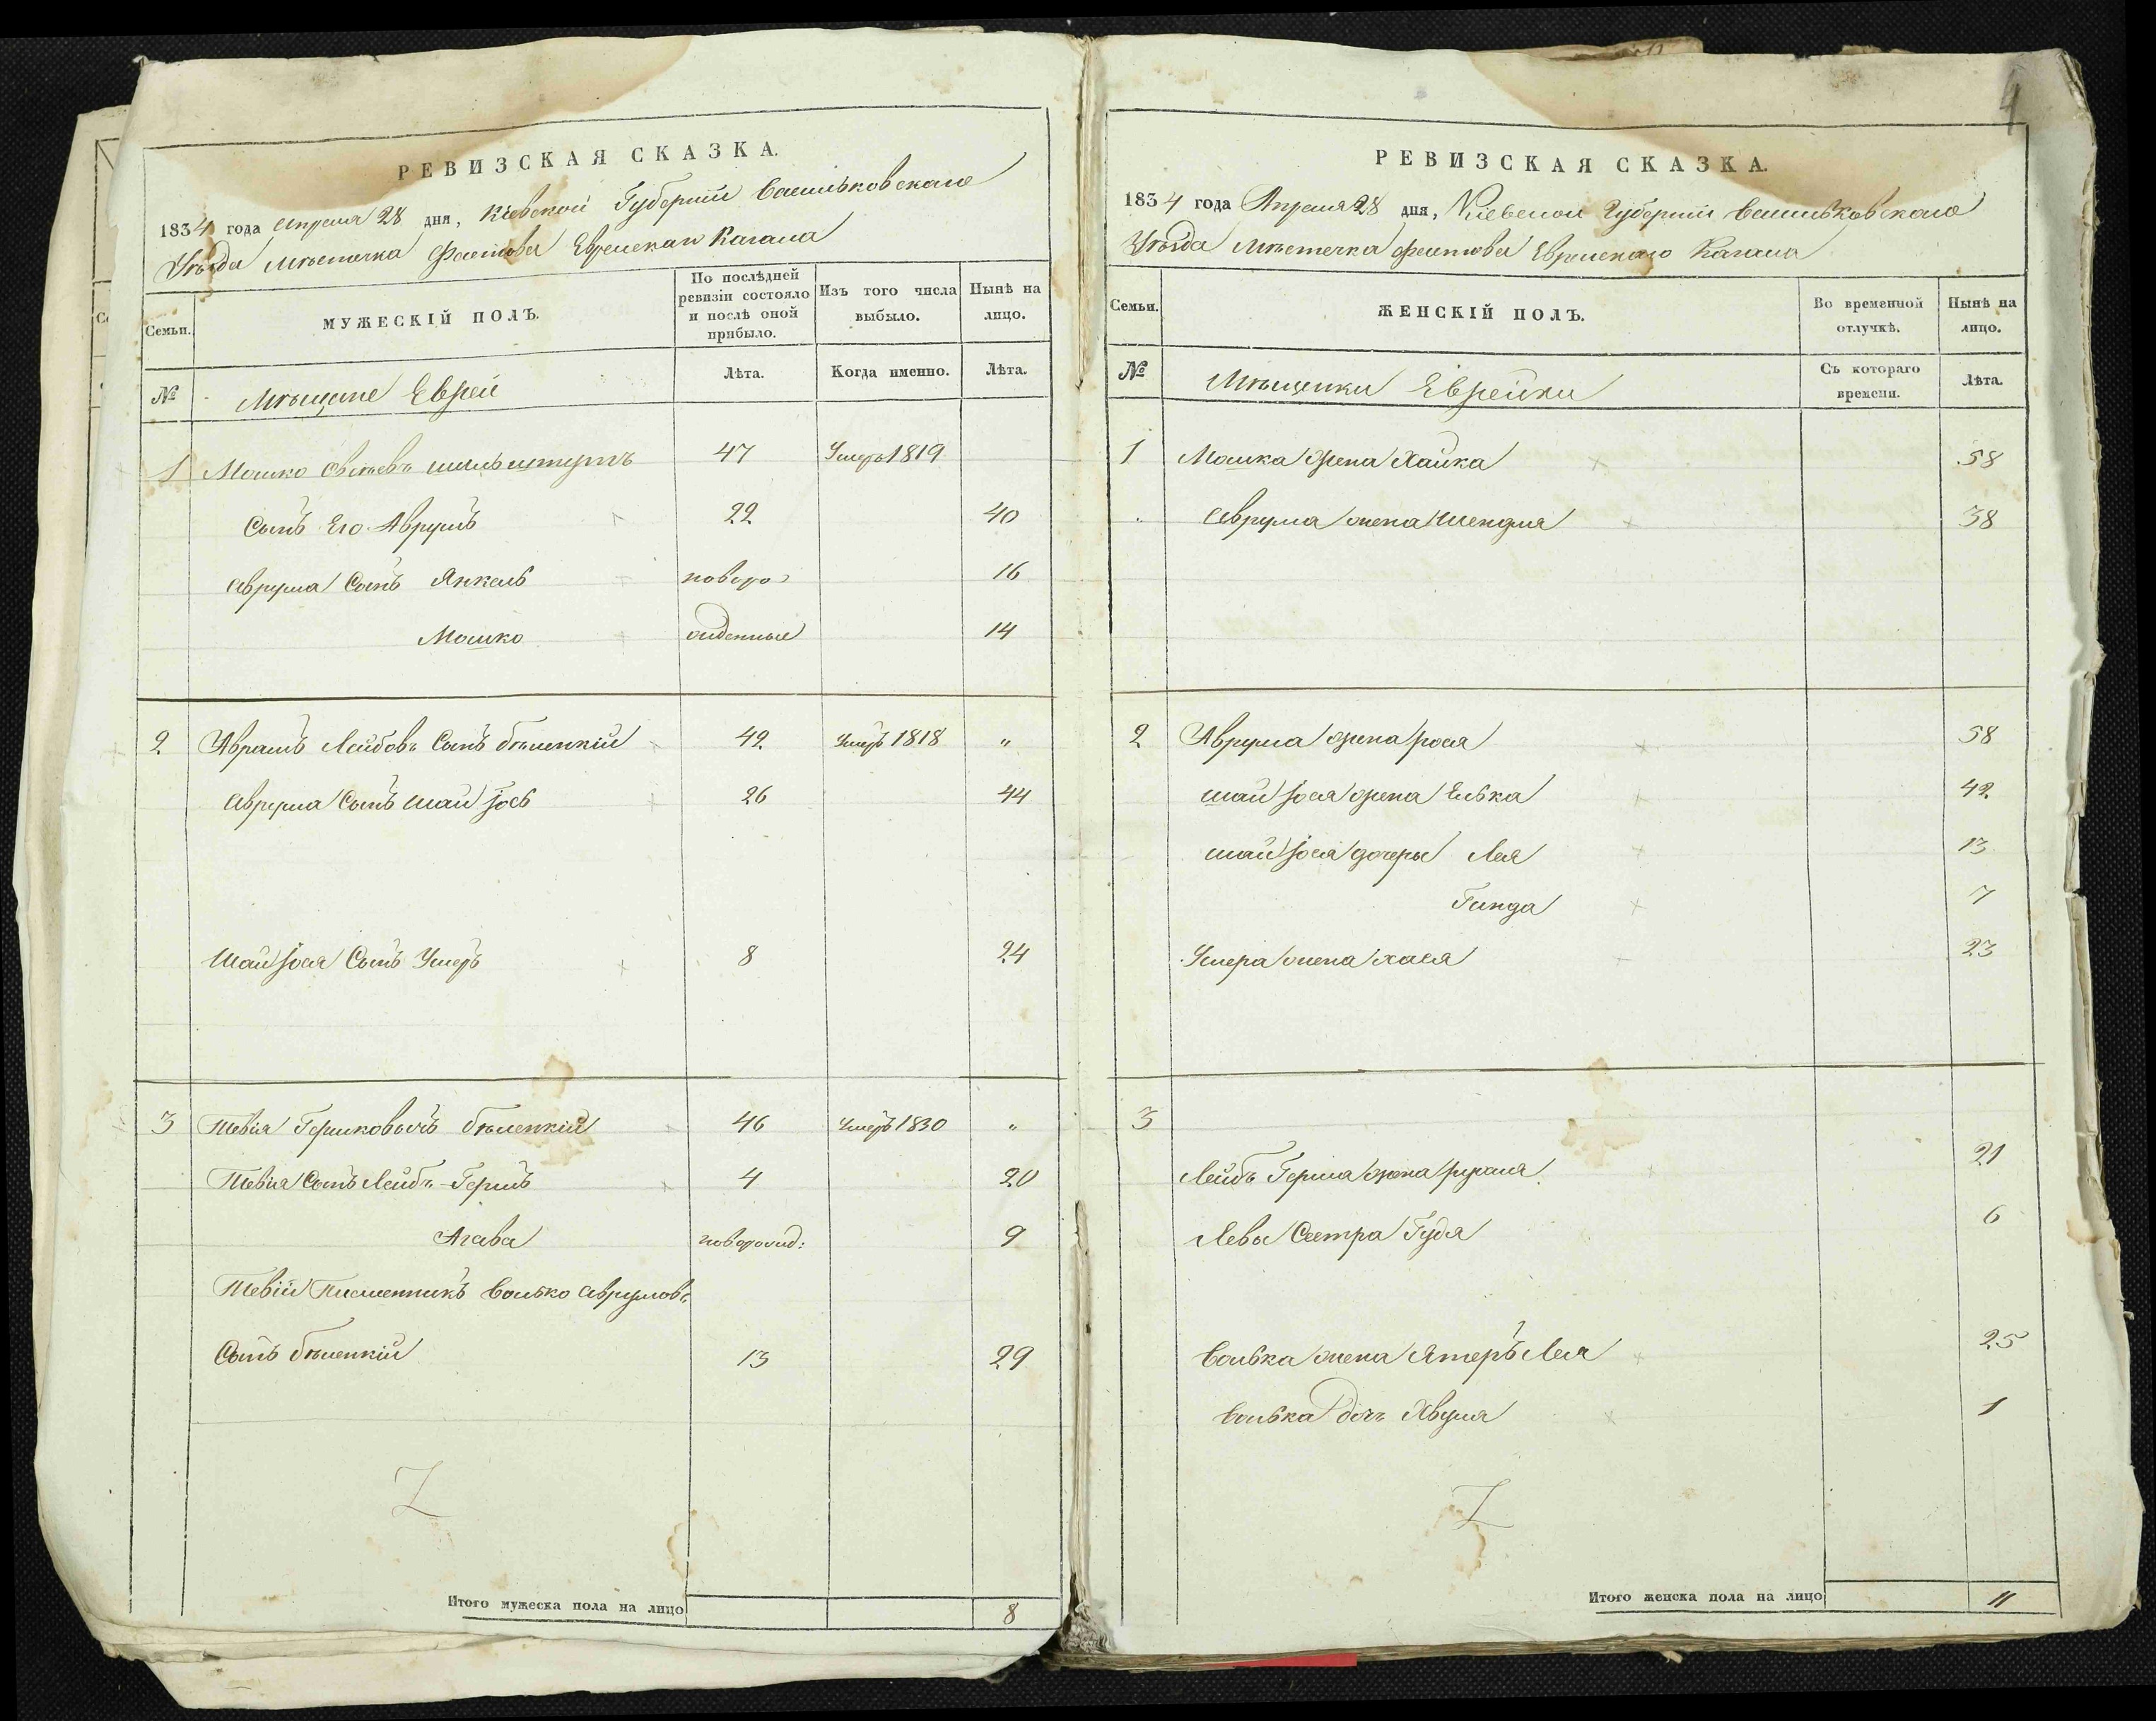 РЕВИЗСКАЯ СКАЗКА.
1834 года апреля 28 дня, Кіевской Губерніи Васильковскаго
Уѣзда Мѣстечка Фастова Еврейскаго Кагала
Семьи.
МУЖЕСКІЙ ПОЛЪ.
По послѣдней ревизіи состояло и послѣ оной прибыло.
Изъ того числа выбыло.
Нынѣ на лицо.
№
Мѣщане Евреи
Лѣта.
Когда именно.
Лѣта.
1 Мошко 47 Умеръ 1819
Сынъ Его Аврумъ 22 40
Аврума Сынъ Янкель новоро 16
Мошко жденные 14
2 Аврамъ Лейбовъ Сынъ Бѣленкій 42 Умеръ 1818 „
Аврума Сынъ Шай Іось 26 44
Шай Іося Сынъ Умеръ 8 24
3 Тевія Гершковичъ Бѣленкій 46 Умеръ 1830 „
Тевія Сынъ Лейбъ Гершъ 4 20
Агава новорожд: 9
Тевіи Племенникъ Волько Аврумовъ
Сынъ Бѣленкій 13 29
Итого мужеска пола на лицо 8
4
РЕВИЗСКАЯ СКАЗКА.
1834 года Апреля 28 дня, Кіевской Губерніи Васильковскаго
Уѣзда Мѣстечка Фастова Еврейскаго Кагала
Семьи.
ЖЕНСКІЙ ПОЛЪ.
Во временной отлучкѣ.
Нынѣ на лицо.
№
Мѣщанки Еврейки
Съ котораго времени.
Лѣта.
1 Мошка жена Хайка 58
Аврума жена Шендля 38
2 Аврума жена Рося 58
Шай Іося жена Елька 42
Шай Іося дочеры Лея 13
Гинда 7
Умера жена Хася 23
3
Лейбъ Герша жена Рухля 21
Сестра Гудя 6
Волька жена Лея 25
Волька дочь 1
Итого женска пола на лицо 11